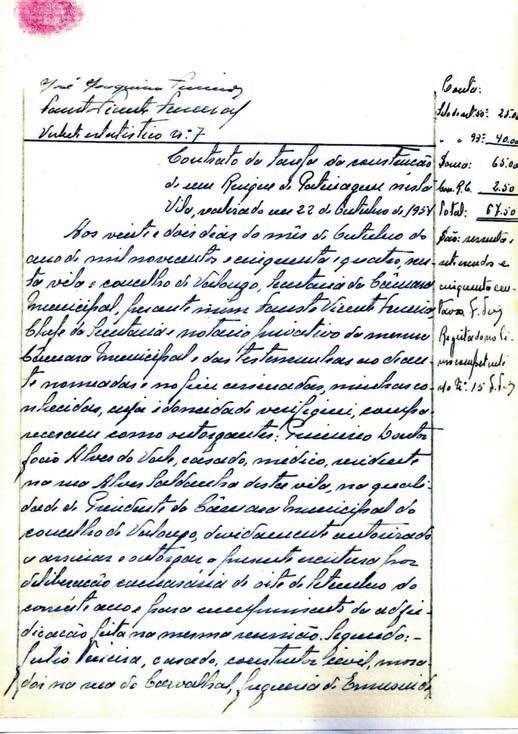 José Joaquim
Fausto Vicente Ferreira
nº 7
Contrato da tarefa da construção
de um Ringue de Patinagem nesta
Vila, realizado em 22 de Outubro de 1954
Aos vinte e dois dias do mês de Outubro do
ano de mil novecentos e cinquenta e quatro, nes-
ta vila e concelho de Valongo, Secretaria da Câmara
Municipal, perante mim Fausto Vicente Ferreira
Chefe da Secretaria e notario privativo da mesma
Câmara Municipal e das testemunhas ao dian-
te nomeadas e no fim assinadas, minhas co-
nhecidas, cuja idoneidade verifiquei, compa-
receram como outorgantes: Primeiro Doutor
Alves do Vale, casado, medico, residente
na rua Alves Saldanha desta vila, na quali-
dade de Presidente da Câmara Municipal do
concelho de Valongo, devidamente autorizado
a assinar e outorgar a presente escritura por
deliberação camarária de oito de Setembro do
corrente ano e para cumprimento da adju-
dicação feita na mesma reunião. Segundo:-
Julio Vieira, casado, construtor civil, mora-
dor na rua do Carvalhal, freguesia de Ermesinde
Conta:
25.00
" " 93º: 40.00
Soma: 65.00
2.50
Total: 67.50
São: sessenta e
sete escudos e
cinquenta cen-
tavos
Registado no li-
vro competente
sob o nº 15